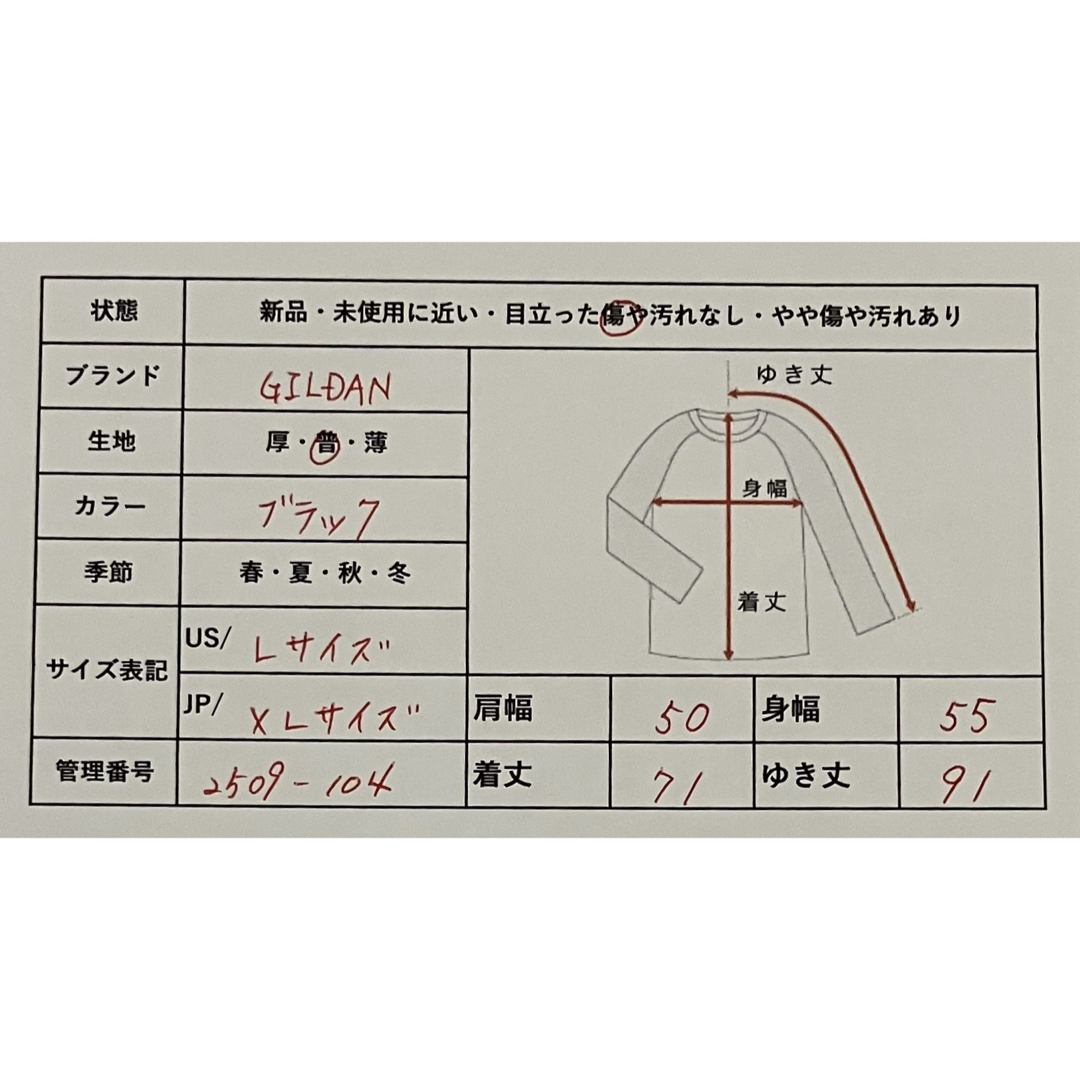 状態 新品・未使用に近い・目立った傷や汚れなし・やや傷や汚れあり
ブランド GILDAN
生地 厚・普・薄
カラー ブラック
季節 春・夏・秋・冬
サイズ表記 US/ Lサイズ
JP/ XLサイズ
管理番号 2509-104
ゆき丈
身幅
着丈
肩幅 50 身幅 55
着丈 71 ゆき丈 91